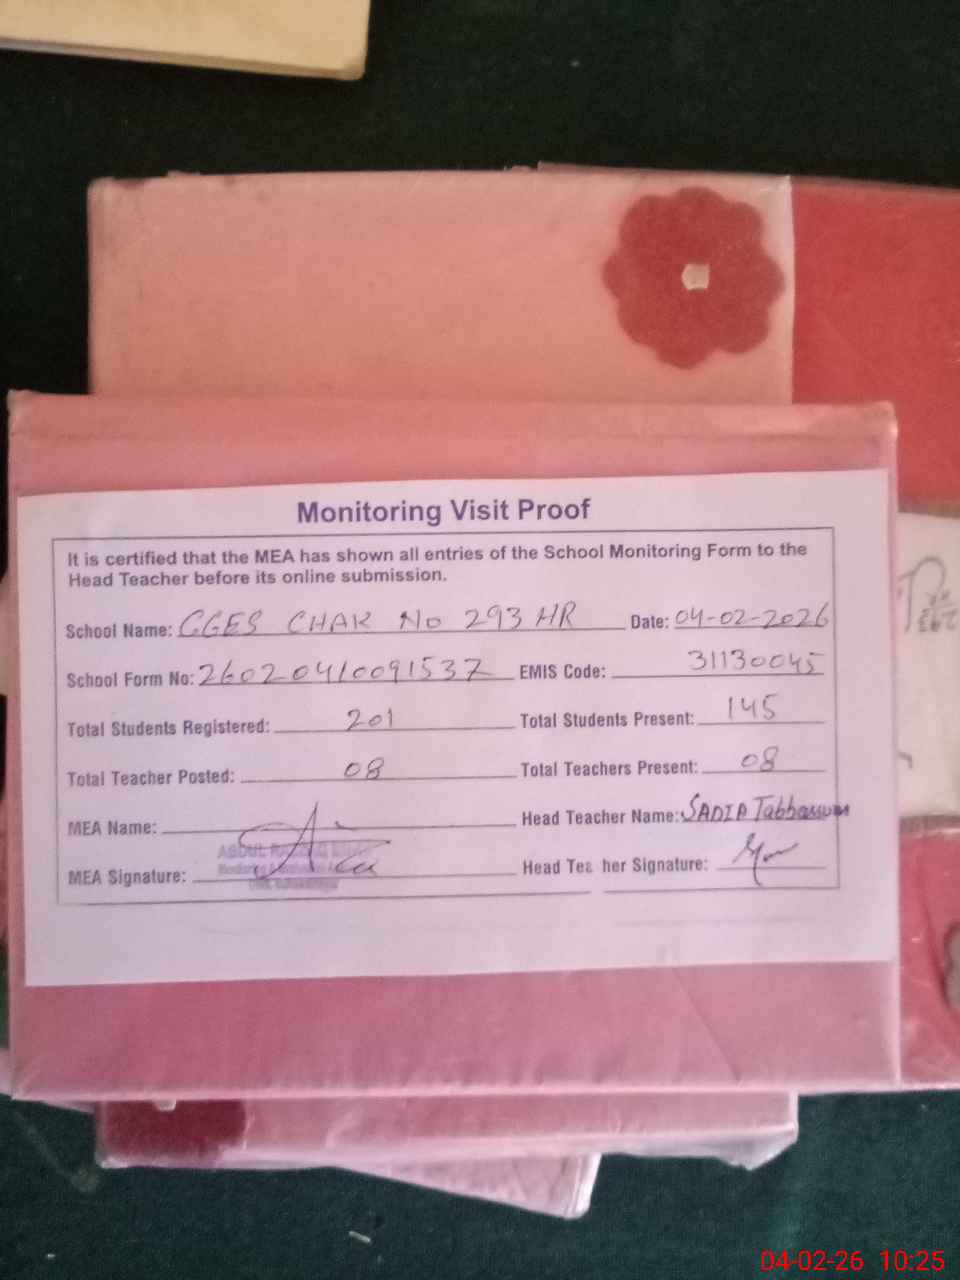 Monitoring Visit Proof
It is certified that the MEA has shown all entries of the School Monitoring Form to the
Head Teacher before its online submission.
School Name: GGES CHAK No 293 HR Date: 04-02-2026
School Form No: 26020410091537 EMIS Code: 31130045
Total Students Registered: 201 Total Students Present: 145
Total Teacher Posted: 08 Total Teachers Present: 08
MEA Name: Head Teacher Name: SADIA Tabbassum
ABDUL
MEA Signature: Head Tea her Signature:
04-02-26 10:25